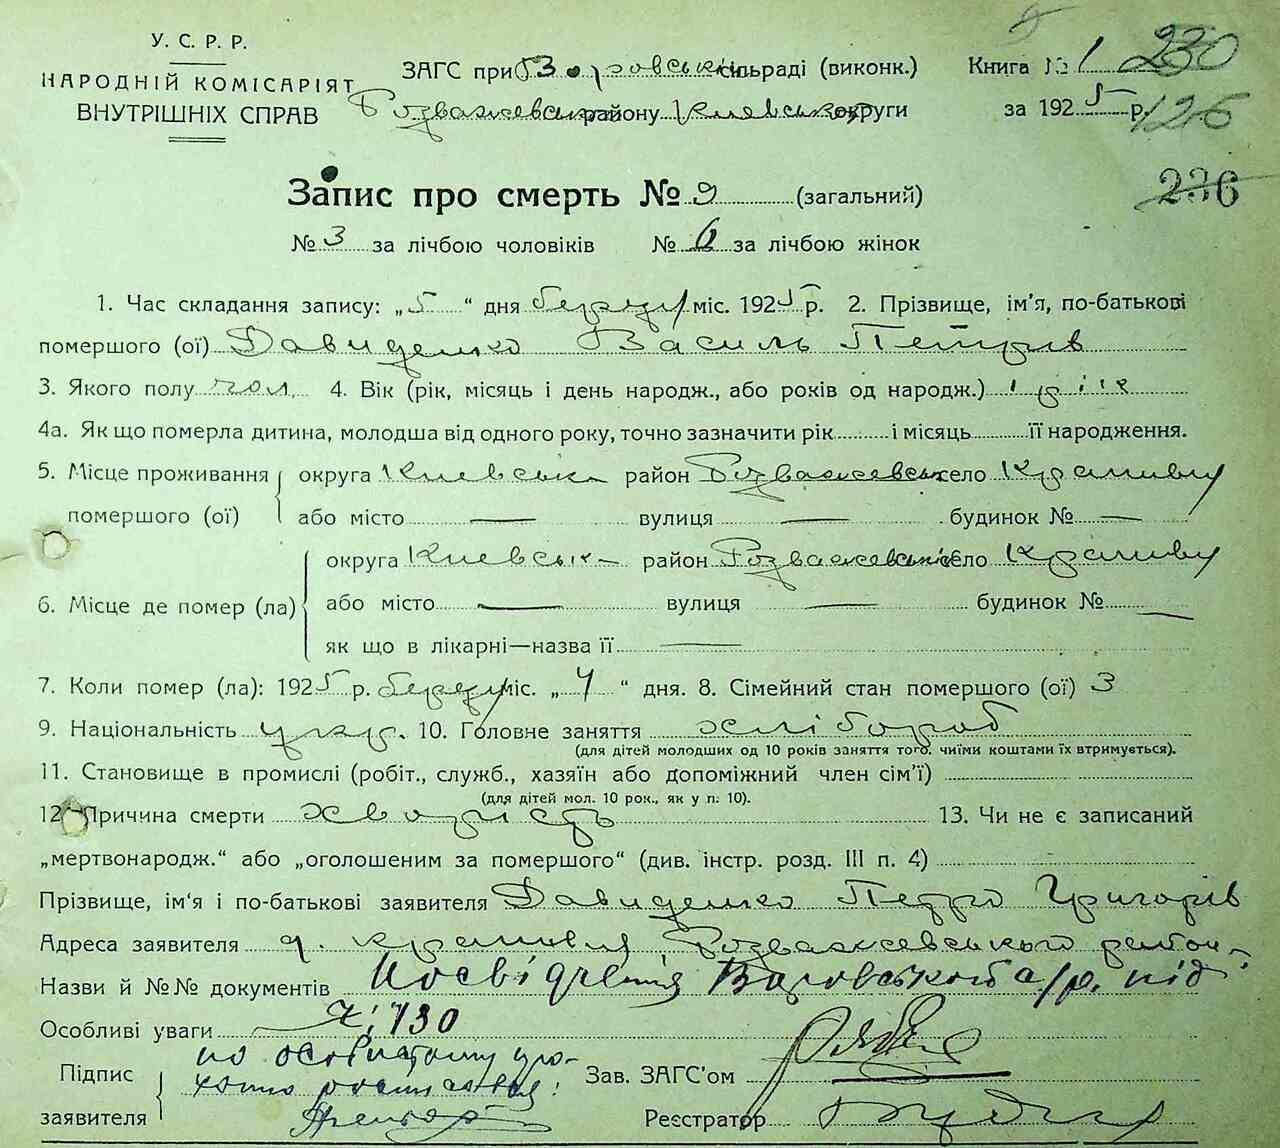 У. С. Р. Р.
НАРОДНІЙ КОМІСАРІЯТ
ВНУТРІШНІХ СПРАВ
ЗАГС при сільраді (виконк.)
Розважевськ району Киевськ округи
Книга № 1 230
за 1925 р. 126
Запис про смерть № 9 (загальний)
236
№ 3 за лічбою чоловіків № 6 за лічбою жінок
1. Час складання запису: „5“ дня березня міс. 1925 р. 2. Прізвище, ім'я, по-батькові
помершого (ої) Давиденко Василь Петрів
3. Якого полу чол. 4. Вік (рік, місяць і день народж., або років од народж.) 1 рік
4а. Як що померла дитина, молодша від одного року, точно зазначити рік і місяць її народження.
5. Місце проживання помершого (ої) округа Киевськ район Розважевськ село Крапивня
або місто — вулиця — будинок № —
6. Місце де помер (ла) округа Киевськ район Розважевськ село Крапивня
або місто — вулиця — будинок № —
як що в лікарні—назва її —
7. Коли помер (ла): 1925 р. березня міс. „4“ дня. 8. Сімейний стан помершого (ої) 3
9. Національність укр. 10. Головне заняття хлібороб
(для дітей молодших од 10 років заняття того, чиїми коштами їх втримується).
11. Становище в промислі (робіт., служб., хазяїн або допоміжний член сім'ї)
(для дітей мол. 10 рок., як у п. 10).
12. Причина смерти хворість 13. Чи не є записаний
„мертвонародж.“ або „оголошеним за помершого“ (див. інстр. розд. III п. 4)
Прізвище, ім'я і по-батькові заявителя Давиденко Петро Григорів
Адреса заявителя Крапивня Розважевського район
Назви й №№ документів Посвідчення с/р. під
Особливі уваги 730
Підпис заявителя по
Зав. ЗАГС'ом
Реєстратор